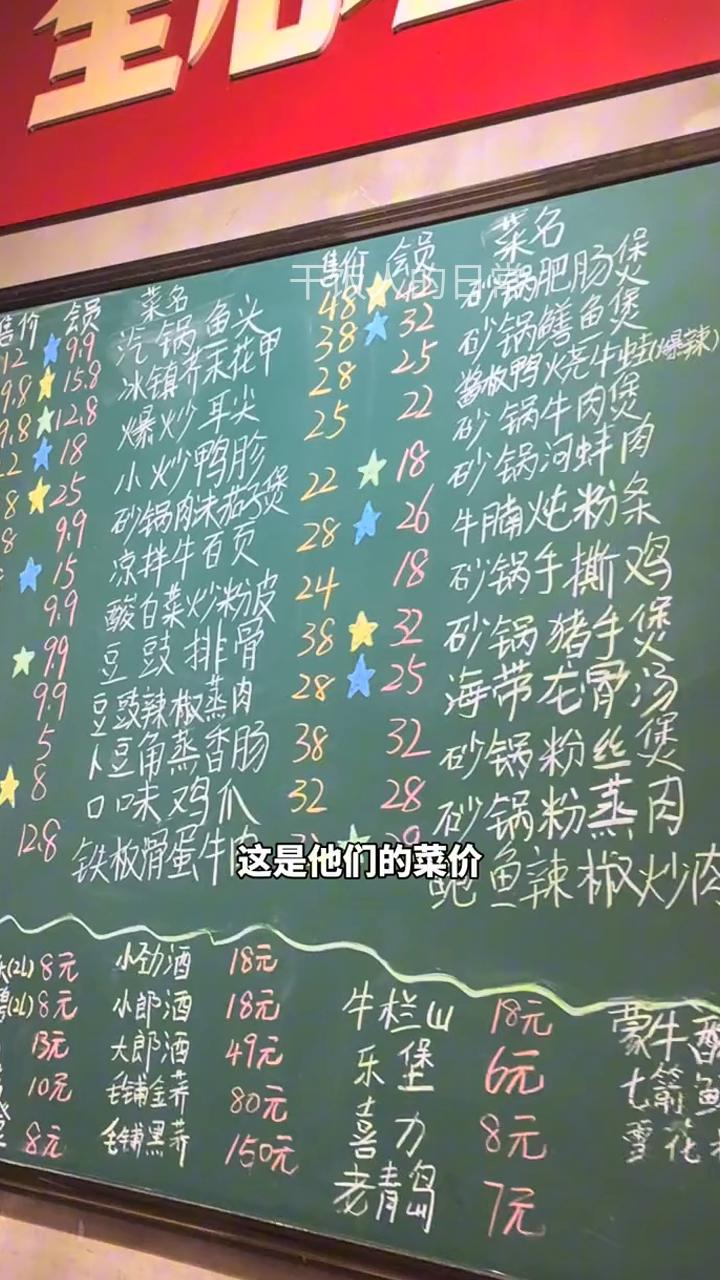 售价 会员 菜名 售价 会员 菜名
12 9.9 汽锅鱼头 48 砂锅肥肠煲
9.8 15.8 冰镇芥末花甲 38 32 砂锅鳝鱼煲
9.8 12.8 爆炒耳尖 28 25 酱椒鸭火烧牛蛙(爆辣)
22 18 小炒鸭胗 25 22 砂锅牛肉煲
8 25 砂锅肉沫茄子煲 22 18 砂锅河蚌肉
8 9.9 凉拌牛百页 28 26 牛腩炖粉条
15 酸白菜炒粉皮 24 18 砂锅手撕鸡
9.9 豆豉排骨 38 32 砂锅猪手煲
9.9 豆豉辣椒蒸肉 28 25 海带龙骨汤
9.9 豆角蒸香肠 38 32 砂锅粉丝煲
5 口味鸡爪 32 28 砂锅粉蒸肉
8 铁板骨蛋牛肉 鲍鱼辣椒炒肉
12.8
干饭人的日常
这是他们的菜价
(2L) 8元 小劲酒 18元
(2L) 8元 小郎酒 18元 牛栏山 18元 蒙牛酸
13元 大郎酒 49元 乐堡 6元 七箭鲜
10元 毛铺金荞 80元 喜力 8元 雪花
8元 毛铺黑荞 150元 老青岛 7元